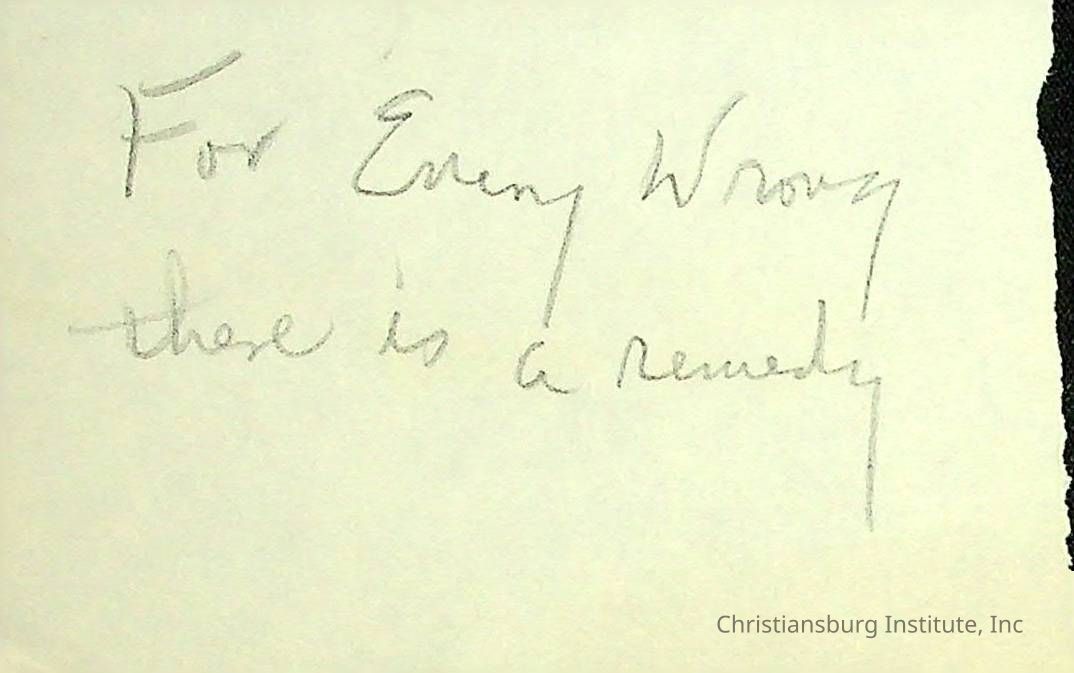 For Every Wrong
there is a remedy
Christiansburg Institute, Inc